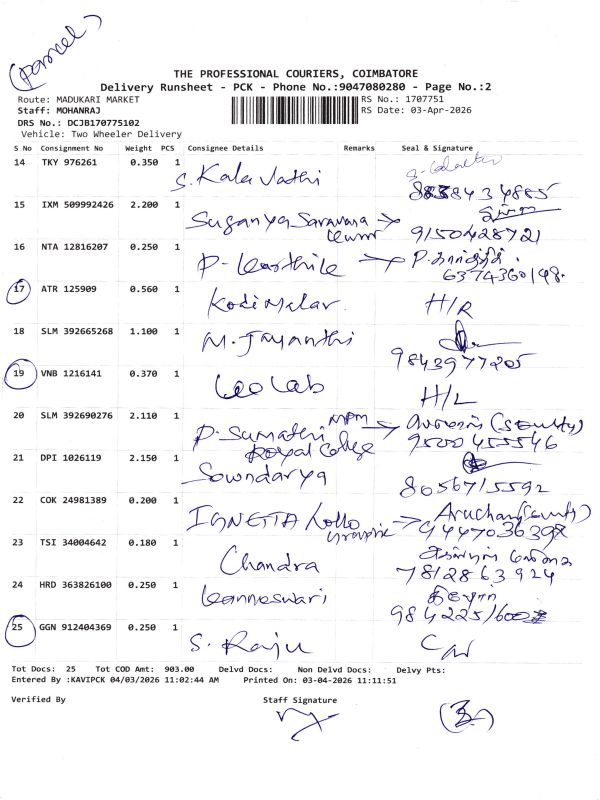 (Parcel)
THE PROFESSIONAL COURIERS, COIMBATORE
Delivery Runsheet - PCK - Phone No.:9047080280 - Page No.:2
Route: MADUKARI MARKET
RS No.: 1707751
Staff: MOHANRAJ
RS Date: 03-Apr-2026
DRS No.: DCJB170775102
Vehicle: Two Wheeler Delivery
S No Consignment No Weight PCS Consignee Details Remarks Seal & Signature
14 TKY 976261 0.350 1 S. Kala Vathi
15 IXM 509992426 2.200 1 Suganya Saravana 9150428721
16 NTA 12816207 0.250 1 P. Karthik 6374360198.
17 ATR 125909 0.560 1 Kodi Malar H/R
18 SLM 392665268 1.100 1 M. Jayanthi 9843977205
19 VNB 1216141 0.370 1 Leo Lab H/L
20 SLM 392690276 2.110 1 P. Sumathi MPM Royal College 9500455546
21 DPI 1026119 2.150 1 Sowndarya 8056715592
22 COK 24981389 0.200 1
23 TSI 34004642 0.180 1 Chandra 7812863924
24 HRD 363826100 0.250 1 Kanneswari
25 GGN 912404369 0.250 1 S. Raju
Tot Docs: 25 Tot COD Amt: 903.00 Delvd Docs: Non Delvd Docs: Delvy Pts:
Entered By :KAVIPCK 04/03/2026 11:02:44 AM Printed On: 03-04-2026 11:11:51
Verified By Staff Signature